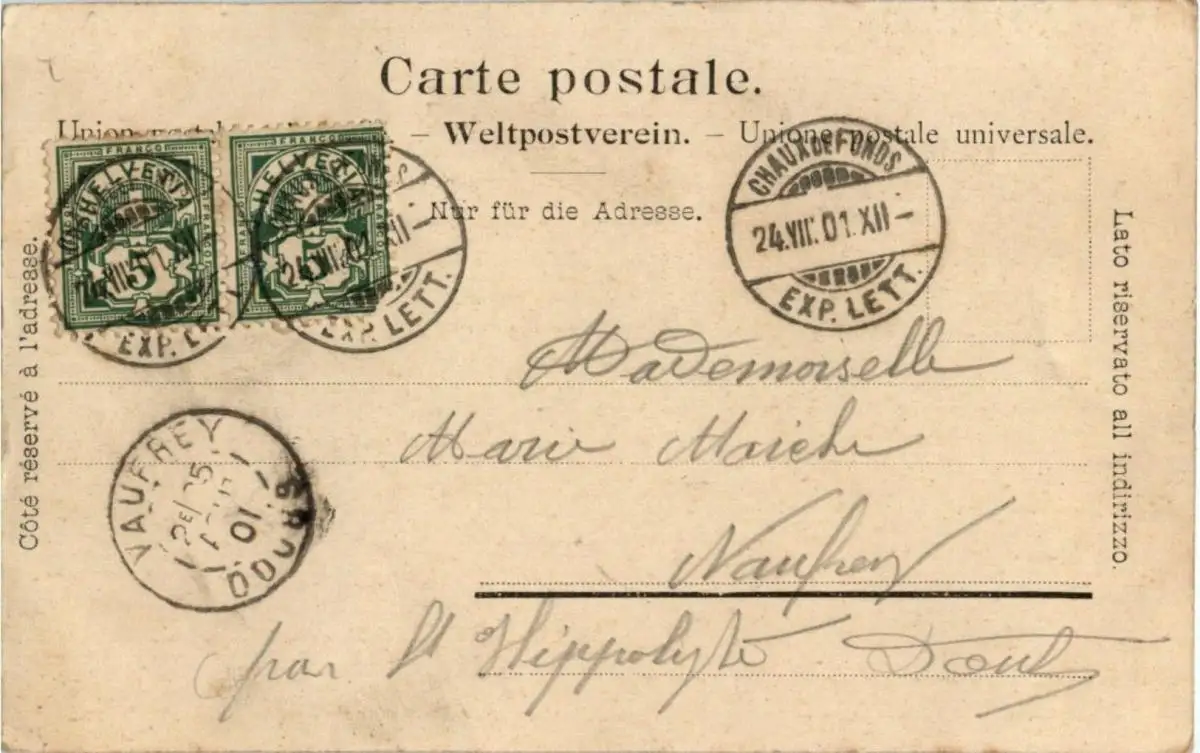 Carte postale.
Union postale – Weltpostverein. – Unione postale universale.
Nur für die Adresse.
Côté réservé à l'adresse.
Lato riservato all indirizzo.
FRANCO
HELVETIA
5
FRANCO
HELVETIA
5
24.VIII.01.XII
EXP. LETT.
24.VIII.01.XII –
EXP. LETT.
CHAUXDEFONDS
24.VIII.01.XII –
EXP. LETT.
VAUFREY
25
01
DOUBS
Mademoiselle
Marie
Vaufrey
par St Hippolyte Doubs